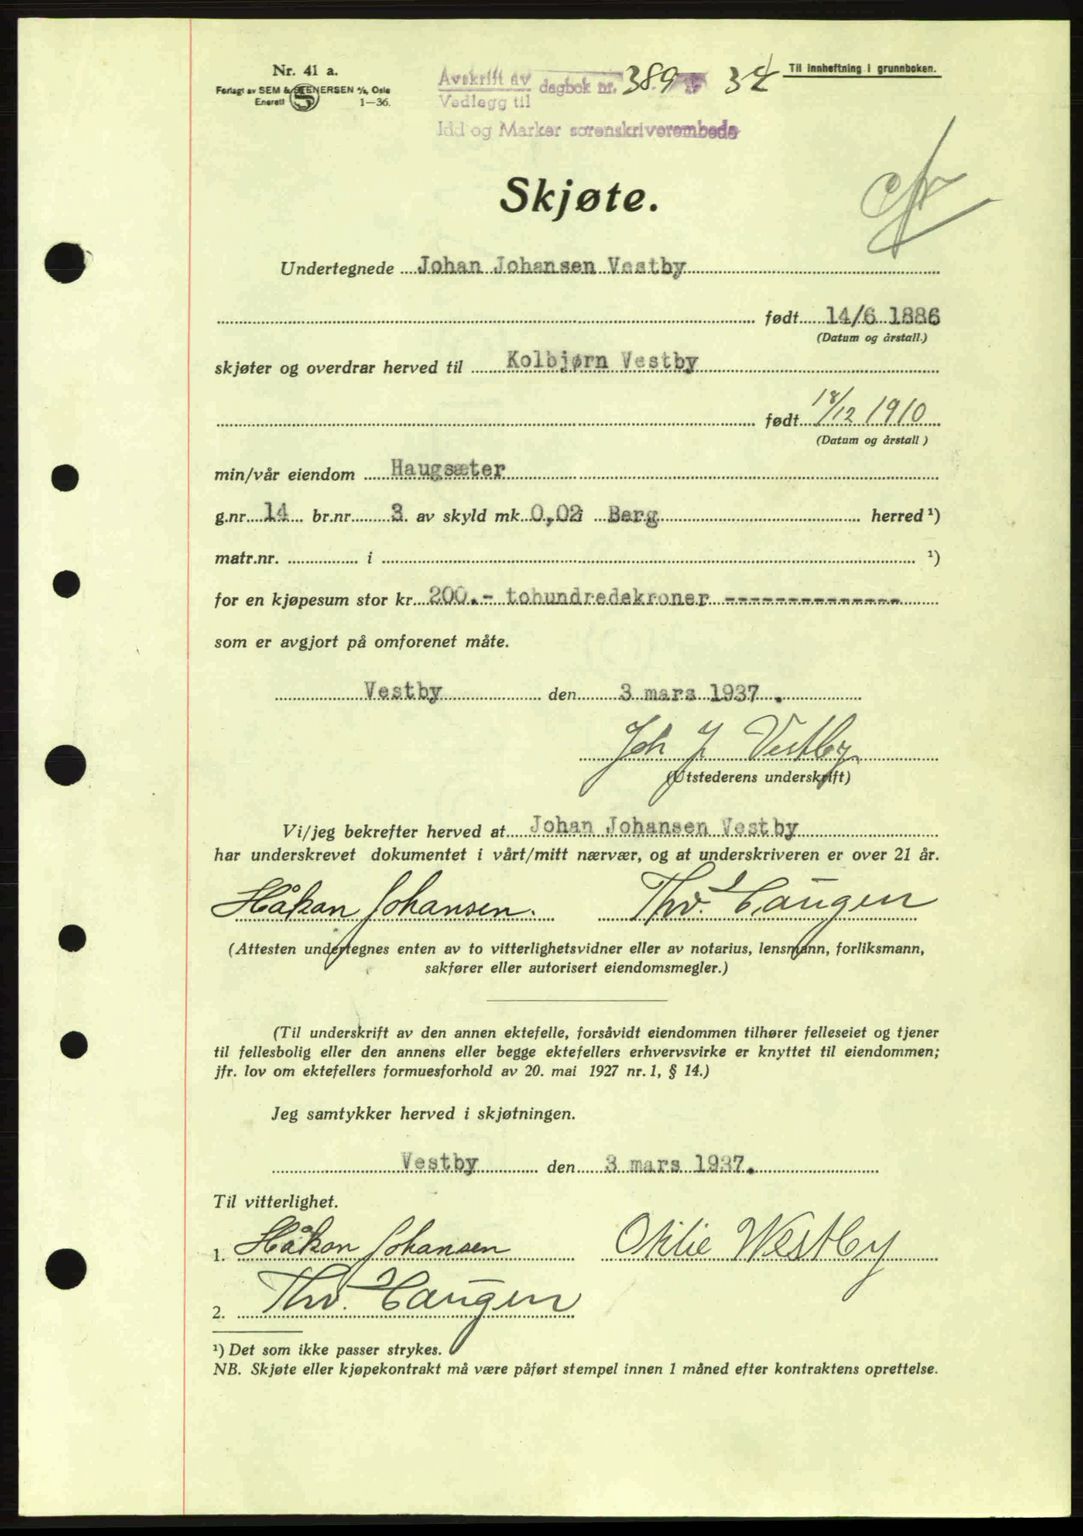 Nr. 41 a.
Forlagt av SEM & STENERSEN A/S, Oslo
Enerett 1—36.
Avskrift av
Vedlegg til dagbok nr. 389
Idd og Marker sorenskriverembede
Til innheftning i grunnboken.
Skjøte.
Undertegnede Johan Johansen Vestby
født 14/6 1886
(Datum og årstall.)
skjøter og overdrar herved til Kolbjørn Vestby
født 18/12 1910
(Datum og årstall )
min/vår eiendom Haugsæter
g.nr. 14 br.nr. 3. av skyld mk. 0,02 i Berg herred ¹)
matr.nr. i ¹)
for en kjøpesum stor kr. 200.- tohundredekroner --------------
som er avgjort på omforenet måte.
Vestby den 3 mars 1937 .
Joh J. Vestby.
(Utstederens underskrift)
Vi/jeg bekrefter herved at Johan Johansen Vestby
har underskrevet dokumentet i vårt/mitt nærvær, og at underskriveren er over 21 år.
Håkon Johansen. Thv. Haugen
(Attesten undertegnes enten av to vitterlighetsvidner eller av notarius, lensmann, forliksmann,
sakfører eller autorisert eiendomsmegler.)
(Til underskrift av den annen ektefelle, forsåvidt eiendommen tilhører felleseiet og tjener
til fellesbolig eller den annens eller begge ektefellers erhvervsvirke er knyttet til eiendommen;
jfr. lov om ektefellers formuesforhold av 20. mai 1927 nr. 1, § 14.)
Jeg samtykker herved i skjøtningen.
Vestby den 3 mars 1937.
Til vitterlighet.
1. Håkon Johansen Otilie Westby
2. Thv. Haugen
¹) Det som ikke passer strykes.
NB. Skjøte eller kjøpekontrakt må være påført stempel innen 1 måned efter kontraktens oprettelse.